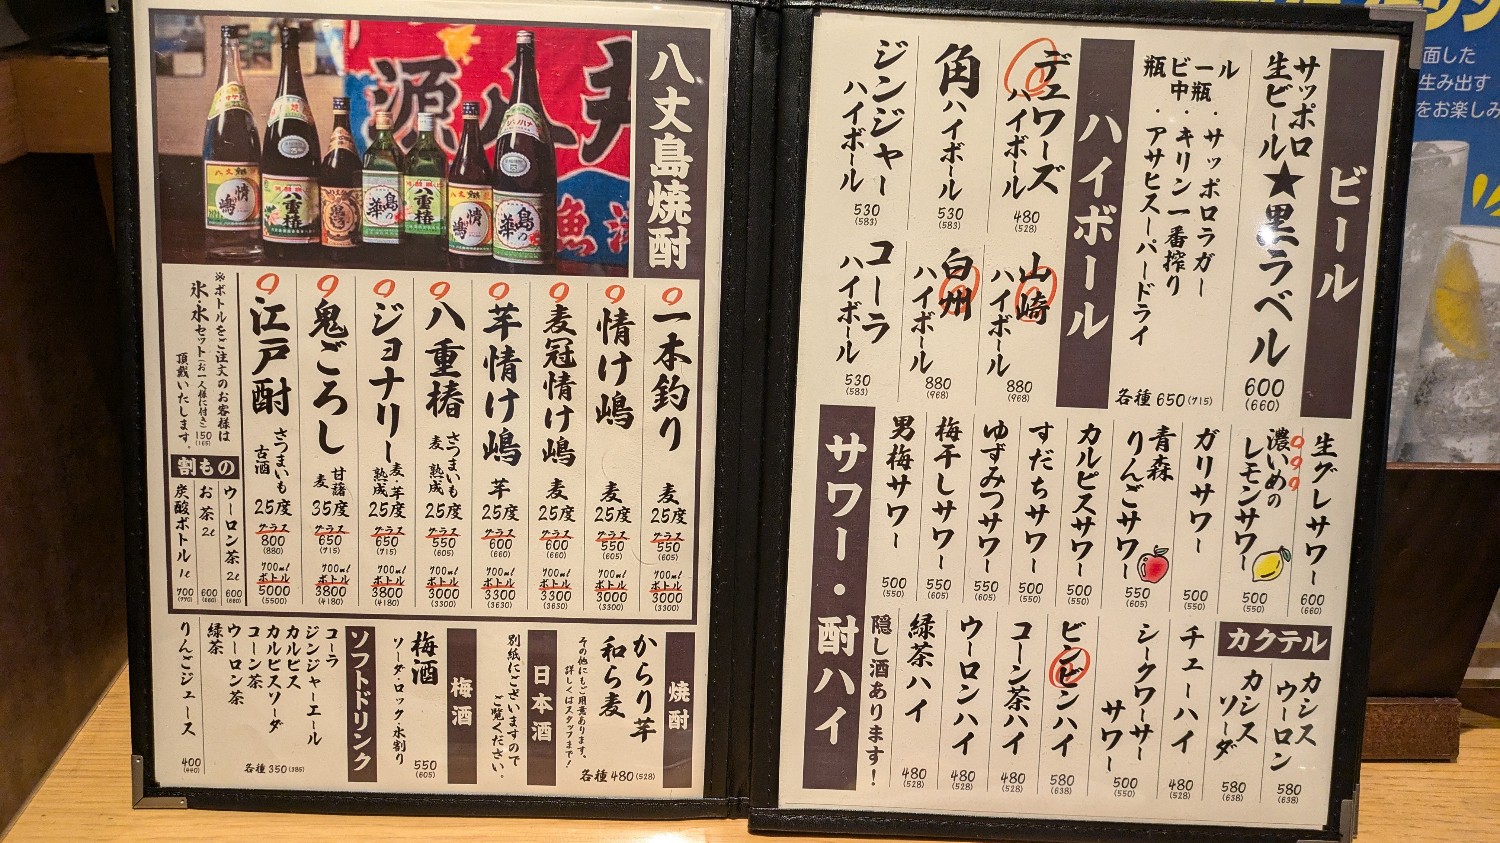 ビール
サッポロ
生ビール★黒ラベル
600
(660)
ビール
中瓶
一瓶
・サッポロラガー
・キリン一番搾り
・アサヒスーパードライ
各種650(715)
ハイボール
デュワーズ
ハイボール
480
(528)
角
ハイボール
530
(583)
ジンジャー
ハイボール
530
(583)
山崎
ハイボール
880
(968)
白州
ハイボール
880
(968)
コーラ
ハイボール
530
(583)
サワー・酎ハイ
生グレサワー
600
(660)
濃いめの
レモンサワー
500
(550)
ガリサワー
500
(550)
青森
りんごサワー
550
(605)
カルピスサワー
500
(550)
すだちサワー
500
(550)
ゆずみつサワー
550
(605)
梅干しサワー
550
(605)
男梅サワー
500
(550)
チューハイ
480
(528)
シークワーサー
サワー
500
(550)
ビンビンハイ
580
(638)
コーン茶ハイ
480
(528)
ウーロンハイ
480
(528)
緑茶ハイ
480
(528)
隠し酒あります!
カクテル
カシス
ウーロン
580
(638)
カシス
ソーダ
580
(638)
八丈島焼酎
一本釣り
麦
25度
グラス
550
(605)
700ml
ボトル
3000
(3300)
情け嶋
麦
25度
グラス
550
(605)
700ml
ボトル
3000
(3300)
麦冠情け嶋
麦
25度
グラス
600
(660)
700ml
ボトル
3300
(3630)
芋情け嶋
芋
25度
グラス
600
(660)
700ml
ボトル
3300
(3630)
八重椿
さつまいも
麦 熟成
25度
グラス
550
(605)
700ml
ボトル
3000
(3300)
ジョナリー
麦・芋
熟成
25度
グラス
650
(715)
700ml
ボトル
3800
(4180)
鬼ごろし
甘藷
麦
35度
グラス
650
(715)
700ml
ボトル
3800
(4180)
江戸酎
さつまいも
古酒
25度
グラス
800
(880)
700ml
ボトル
5000
(5500)
※ボトルをご注文のお客様は
氷・水セット(お一人様に付き)150(165)
頂戴いたします。
割もの
ウーロン茶 2ℓ
600
(660)
お茶 2ℓ
600
(660)
炭酸ボトル 1ℓ
700
(770)
焼酎
からり芋
和ら麦
各種480(528)
その他にもご用意あります。
詳しくはスタッフまで!
日本酒
別紙にございますので
ご覧ください。
梅酒
梅酒
ソーダ・ロック・水割り
550
(605)
ソフトドリンク
コーラ
ジンジャーエール
カルピス
カルピスソーダ
コーン茶
ウーロン茶
緑茶
各種350(385)
りんごジュース
400
(440)
面した
生み出す
をお楽しみ